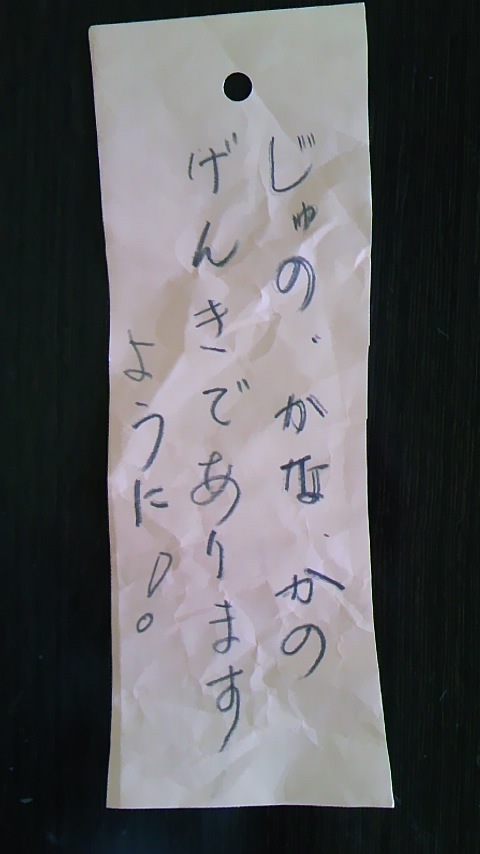 じゅの、かな、かの
げんきであります
ように！